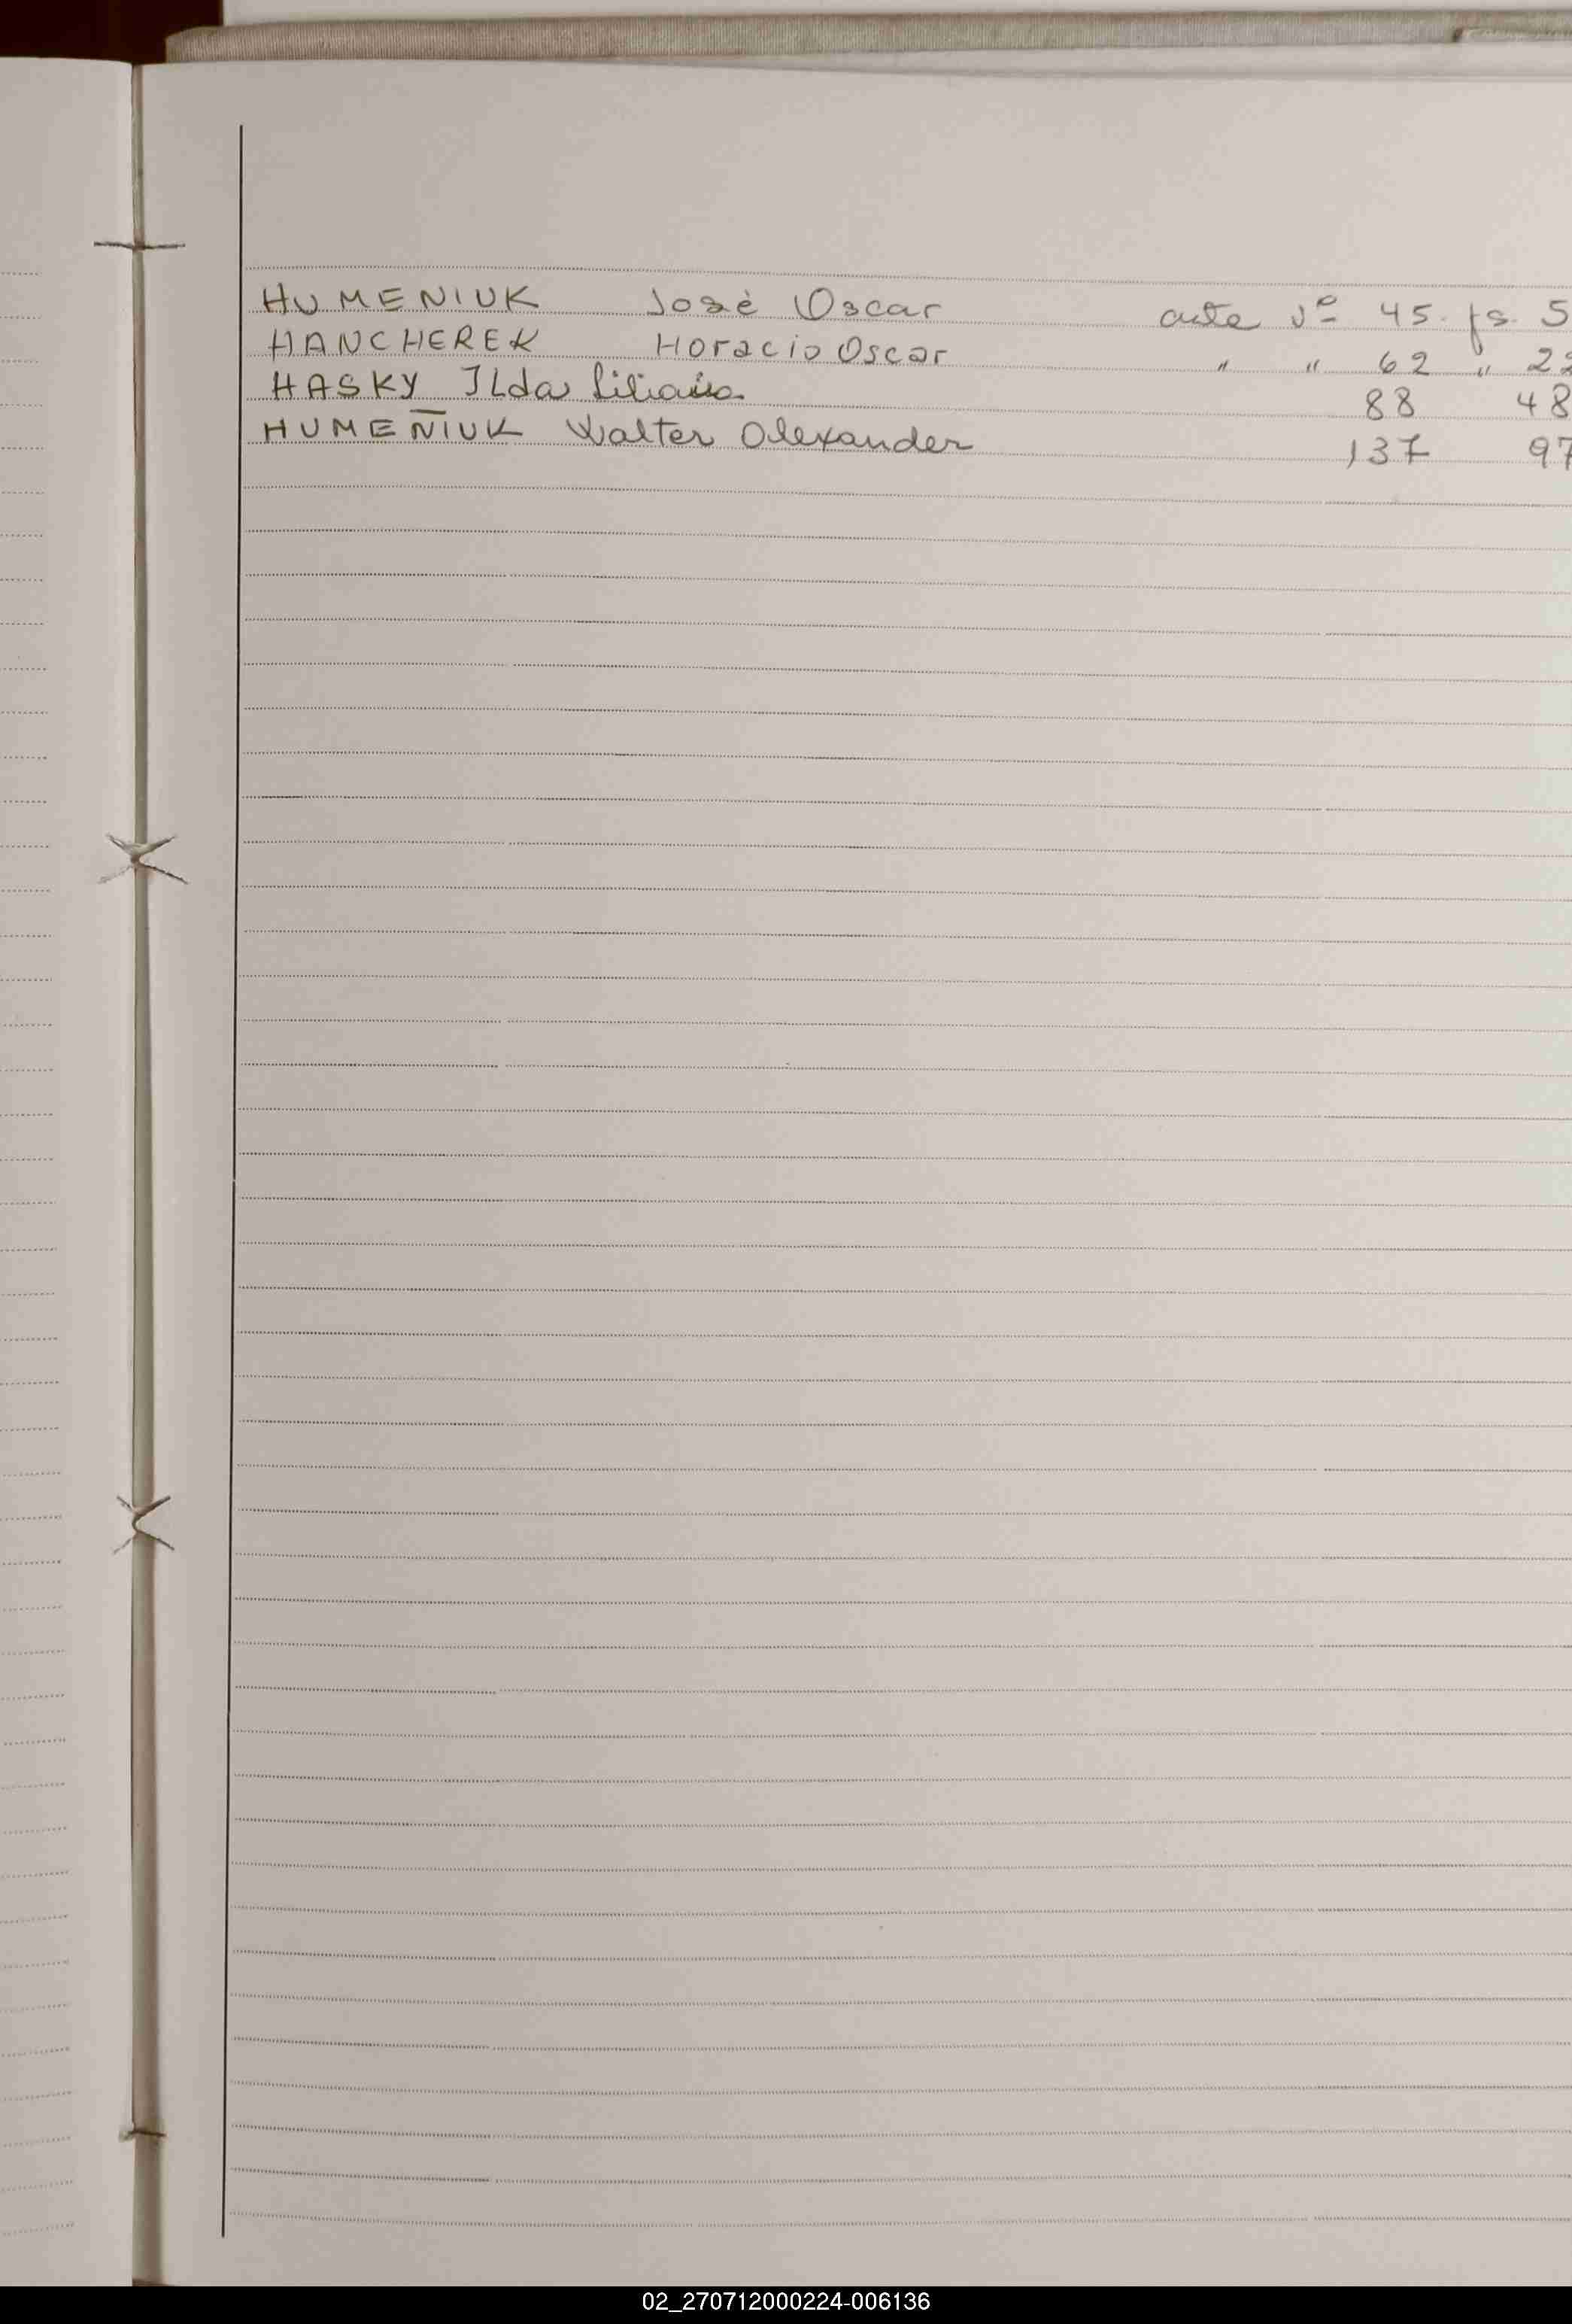 HUMENIUK José Oscar acta Nº 45. fs. 5
HANCHEREK Horacio Oscar " " 62 " 22
HASKY ILda Liliana 88 48
HUMENIUK Walter Alexander 137 97
02_270712000224-006136